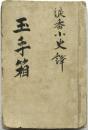 淡香小史譯
玉手箱